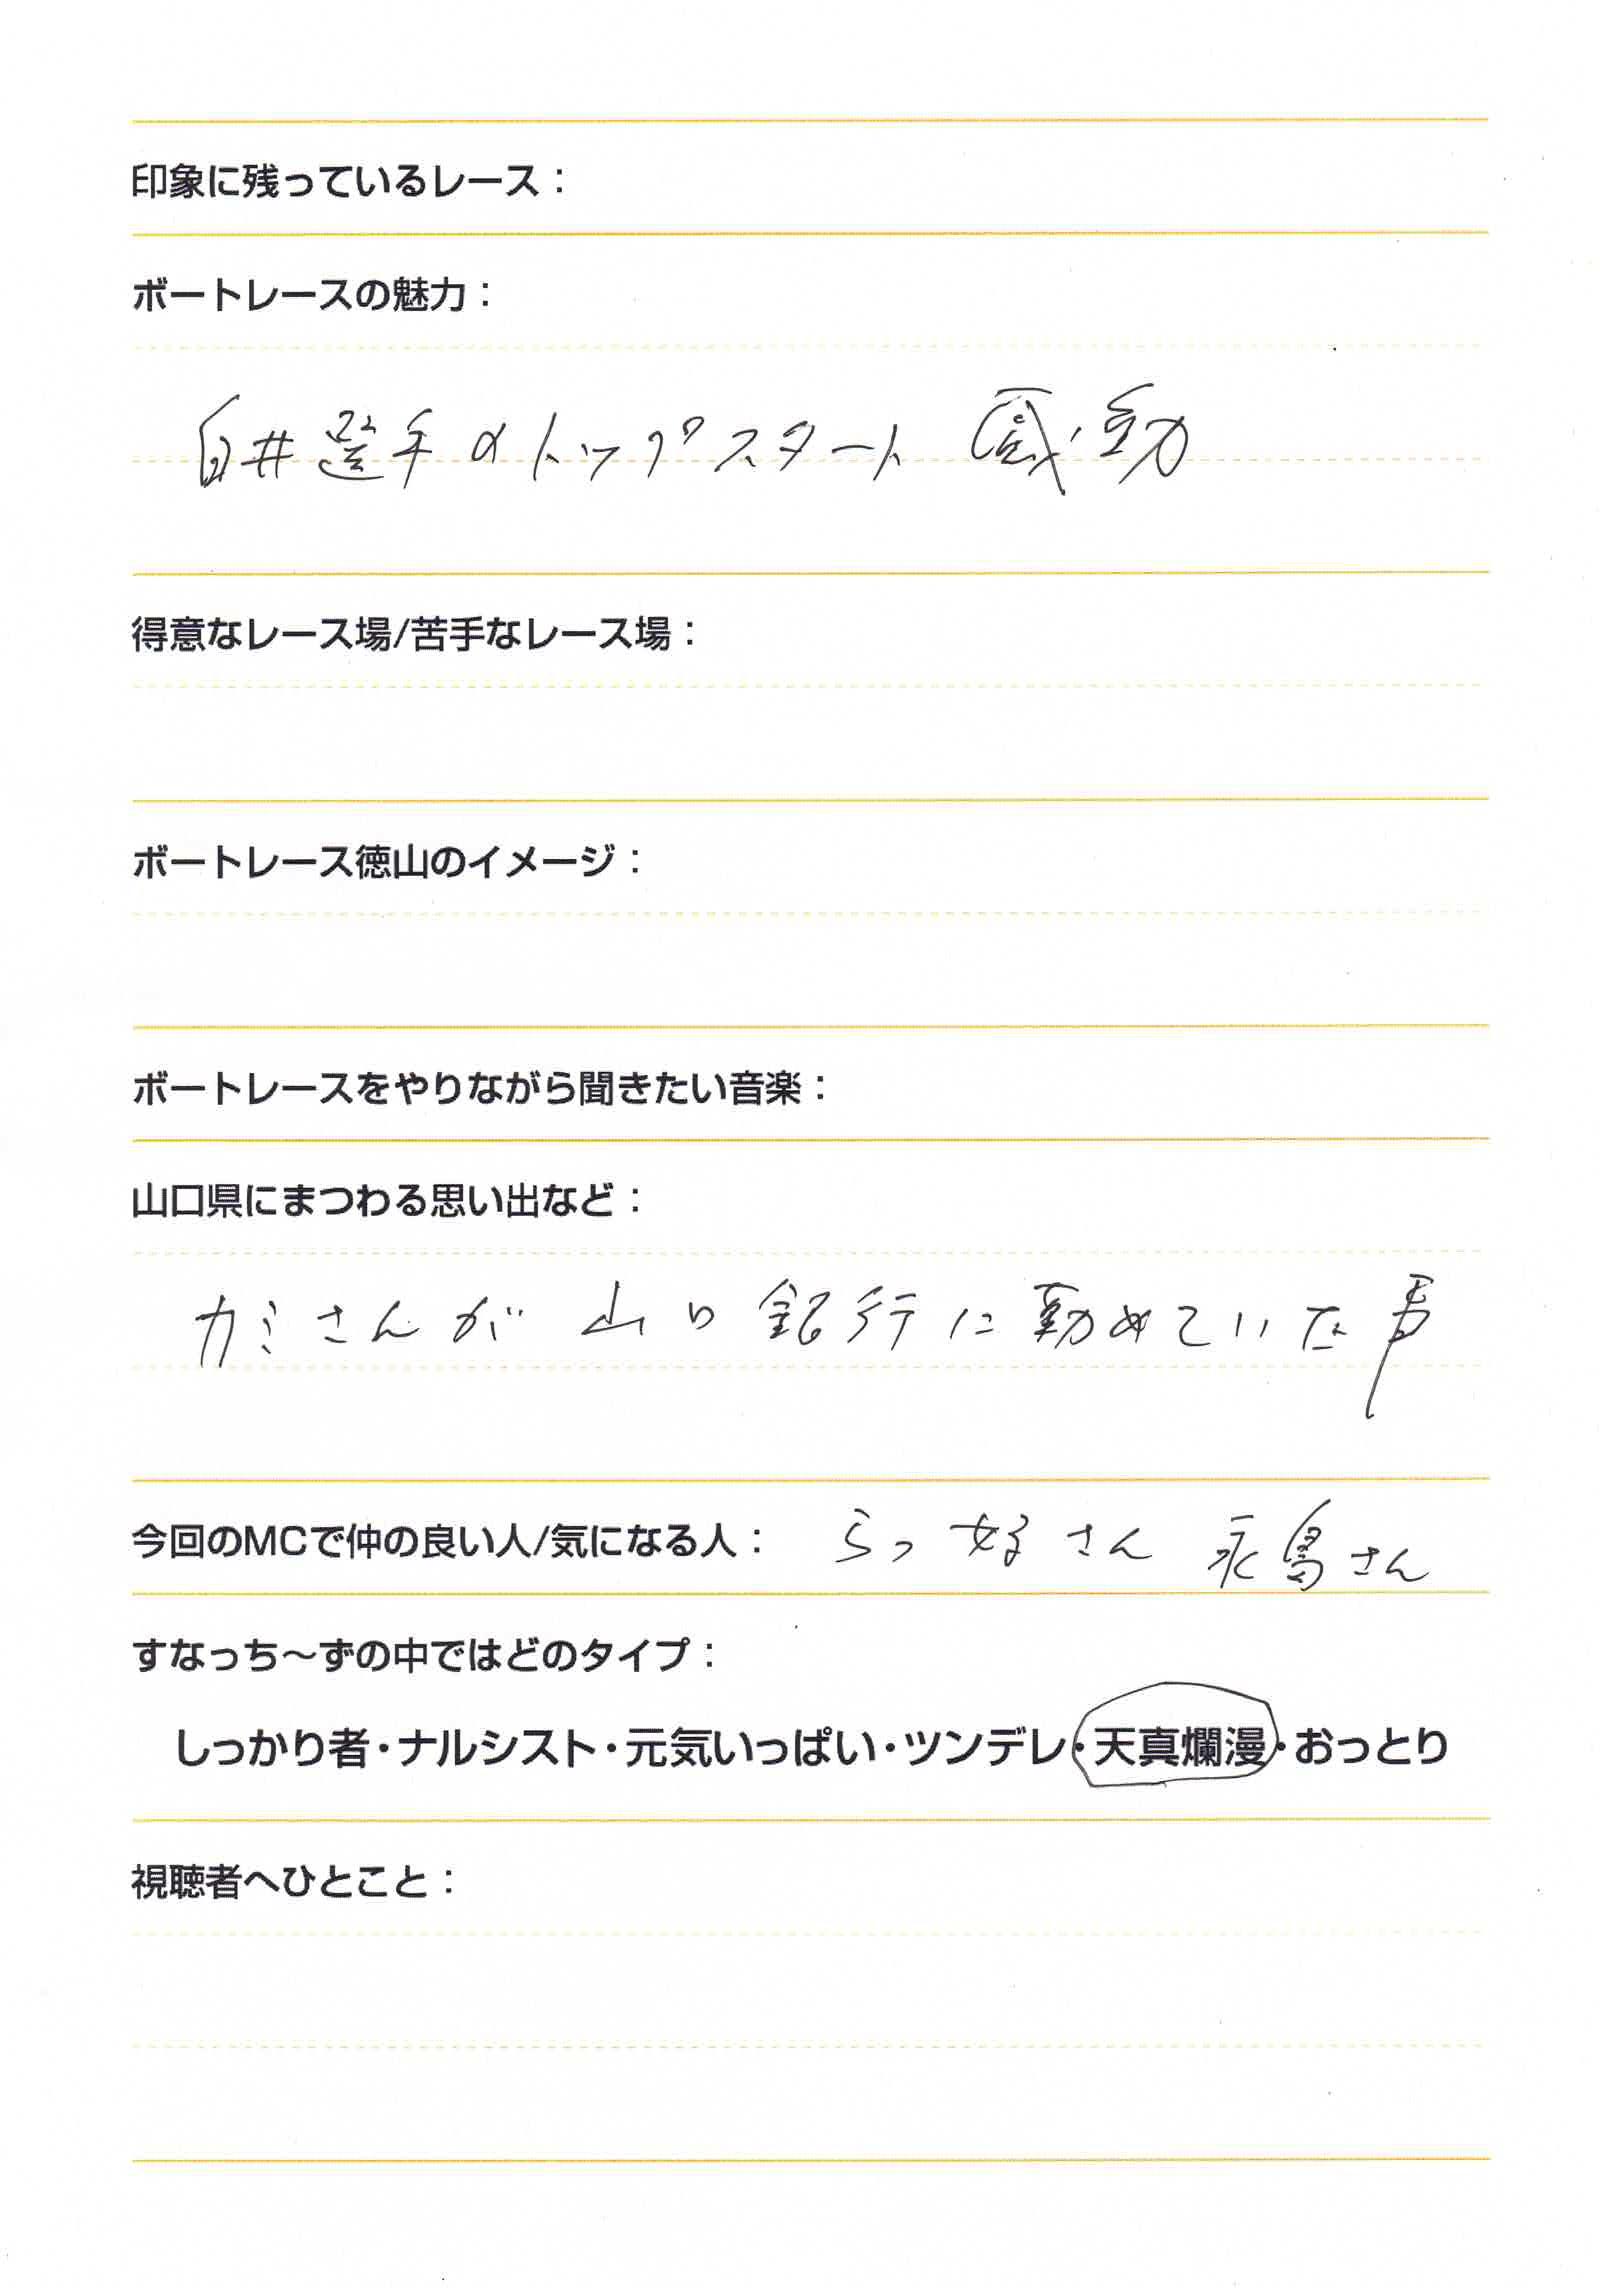 印象に残っているレース：
ボートレースの魅力：
白井選手のトップスタート 感動
得意なレース場/苦手なレース場：
ボートレース徳山のイメージ：
ボートレースをやりながら聞きたい音楽：
山口県にまつわる思い出など：
カミさんが 山口銀行に勤めていた事
今回のMCで仲の良い人/気になる人： らっ好さん 永島さん
すなっち～ずの中ではどのタイプ：
しっかり者・ナルシスト・元気いっぱい・ツンデレ・天真爛漫・おっとり
視聴者へひとこと：